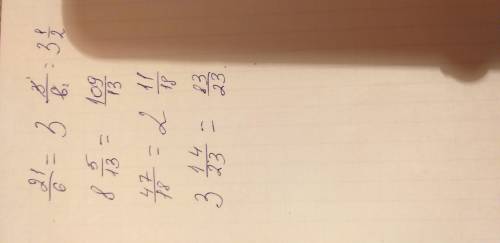 21/6 = 3 3/6 = 3 1/2
8 5/13 = 109/13
47/18 = 2 11/18
3 14/23 = 83/23